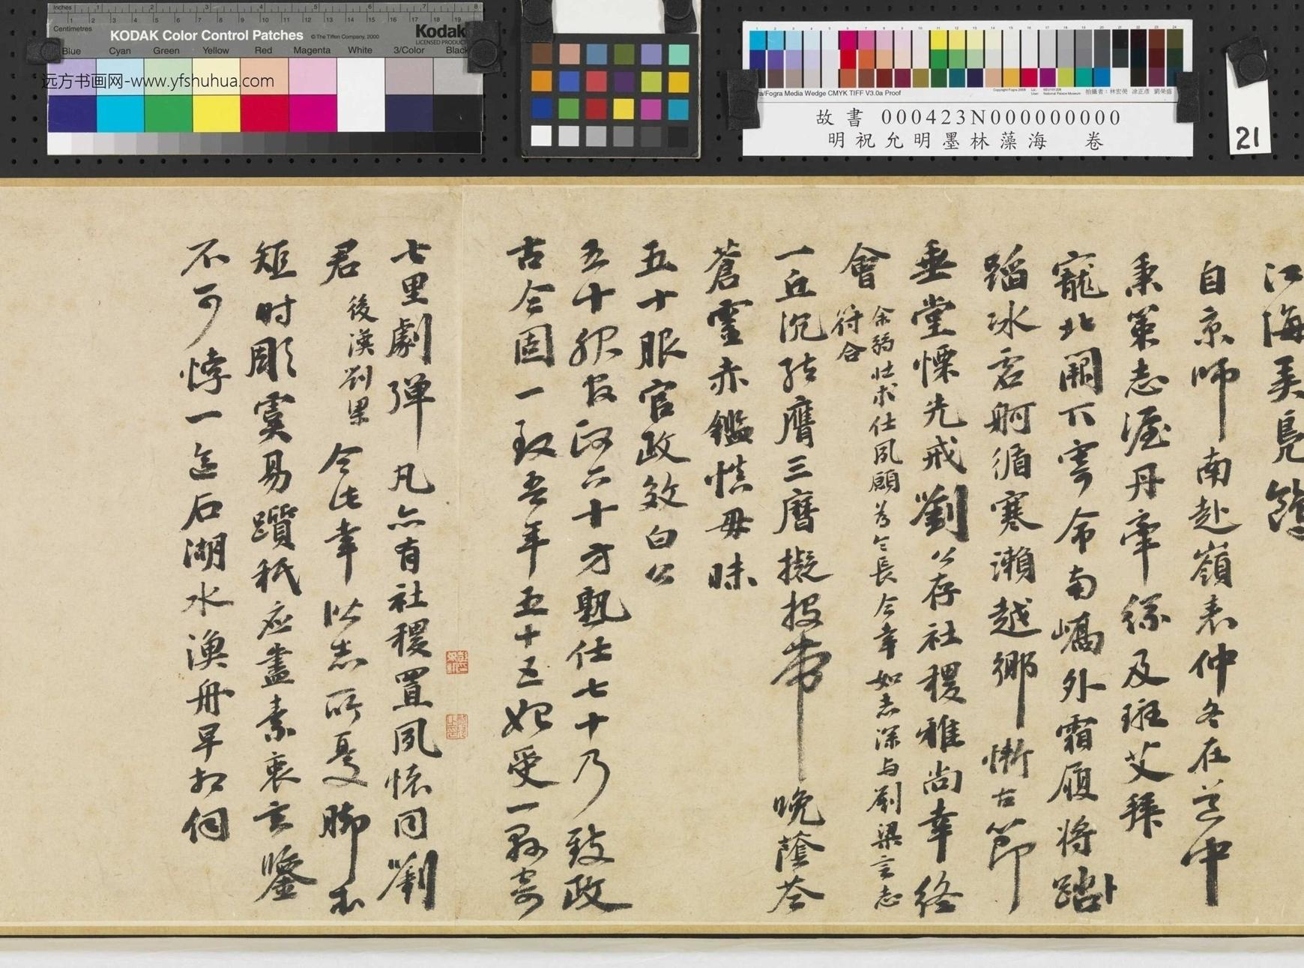 inches
Centimetres
KODAK Color Control Patches
© The Tiffen Company, 2000
Kodak
LICENSED PRODUCT
Blue Cyan Green Yellow Red Magenta White 3/Color Black
远方书画网-www.yfshuhua.com
/Fogra Media Wedge CMYK TIFF V3.0a Proof
故書 000423N000000000
明祝允明墨林藻海 卷
21
江海美
自京師南赴嶺表仲冬在道中
秉策志渥丹牽絲及班艾拜
寵北闕下寄命南嶠外霜履將踏
蹈冰雪舸循寒瀨越鄉慚古節
垂堂慄先戒劉公存社稷雅尚幸終
會
余弱壯求仕夙願為令長今幸如志深与劉梁言志
符合
一丘沉結膺三曆擬投带晚蔭苍
蒼靈赤鑑慎毋昧
五十服官政效白公
五十服官政六十方熟仕七十乃致政
古今固一致吾年五十五始受一縣寄
七里劇彈丸亦有社稷置夙懷同劉
君
後漢劉梁
今此幸似志所憂腳本
短时彫虞易躓秖应盡素衷玄鑒
不可悖一迄石湖水漁舟早相伺